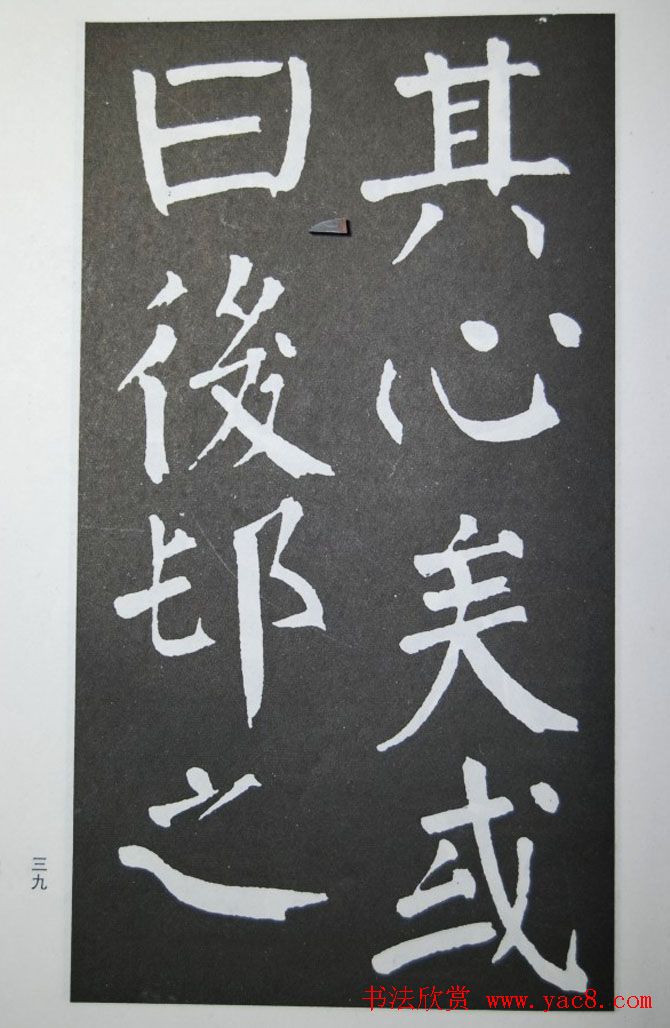 其心美或
曰後邨之
三九
书法欣赏 www.yac8.com